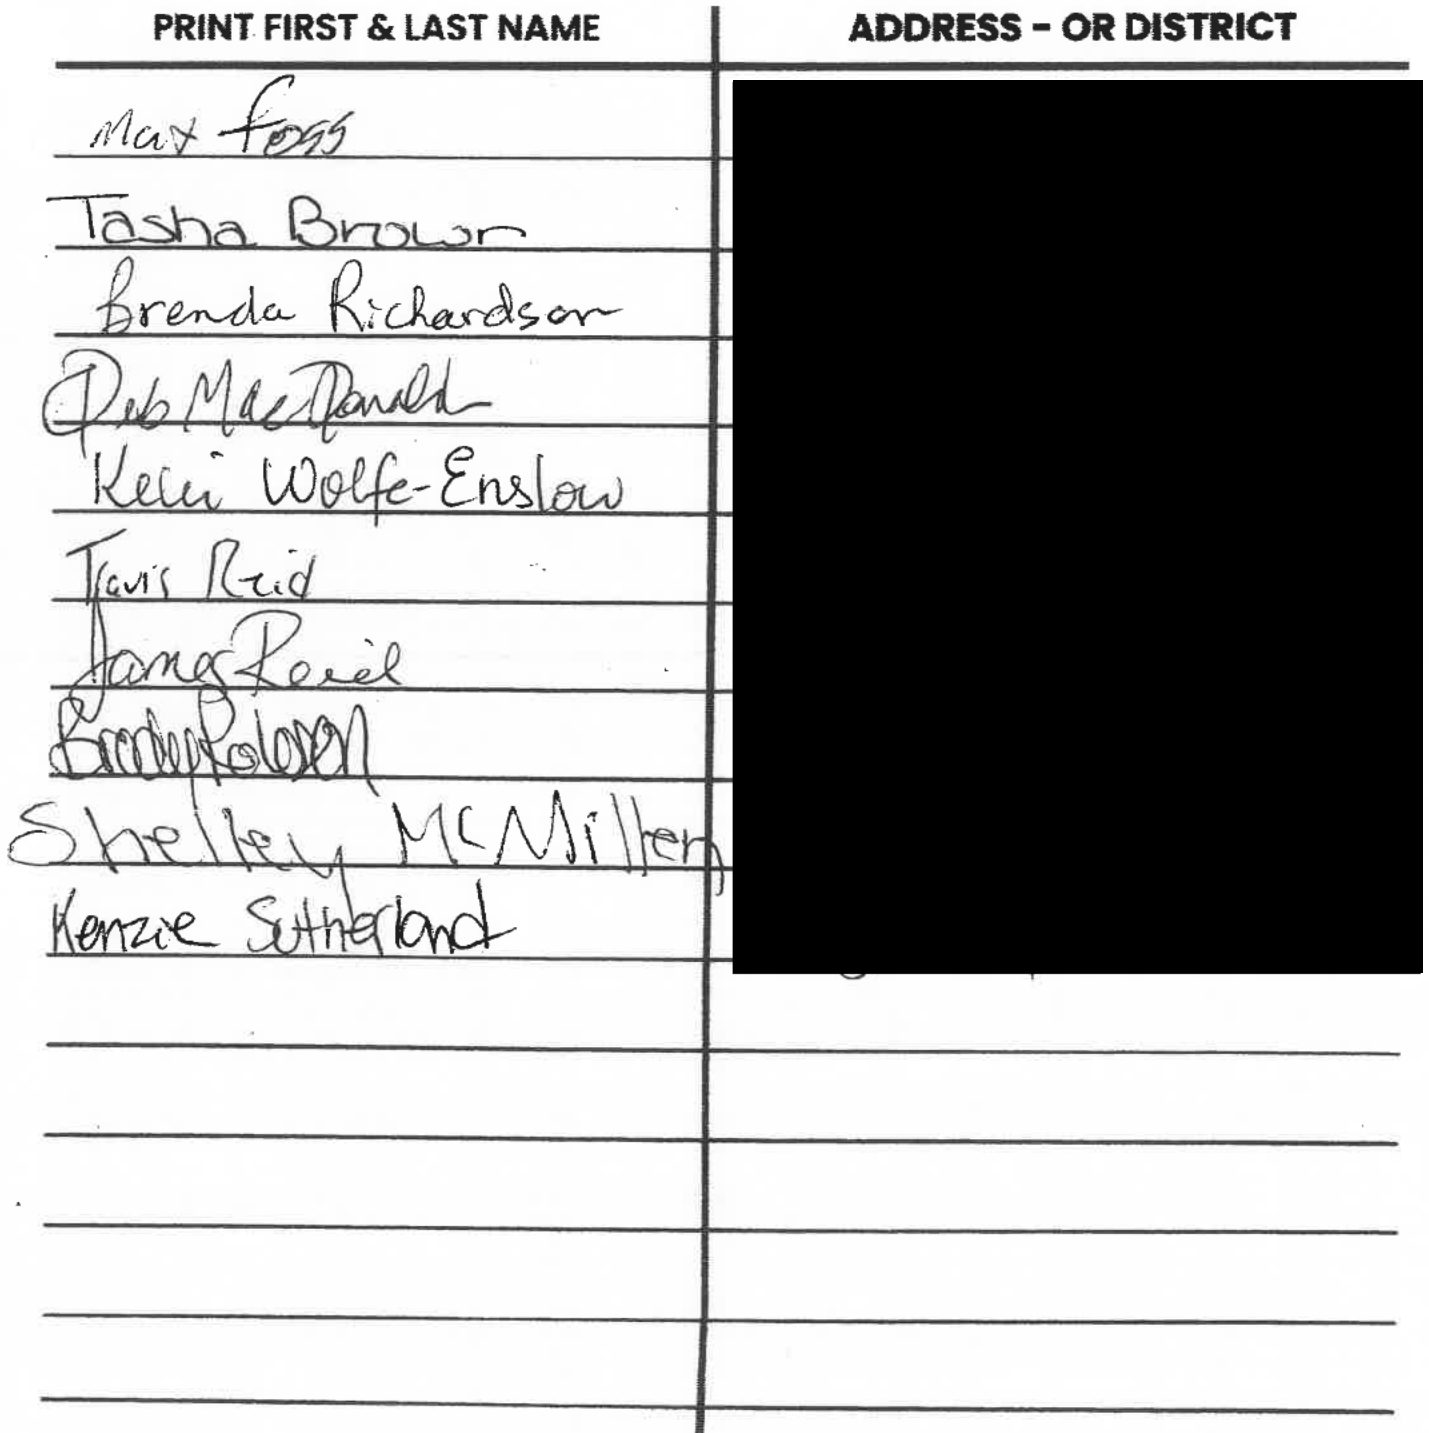 PRINT FIRST & LAST NAME ADDRESS - OR DISTRICT
Max Foss
Tasha Brown
Brenda Richardson
Deb MacDonald
Kelli Wolfe-Enslow
Travis Reid
James Reid
Brody
Shelley McMillen
Kenzie Sutherland